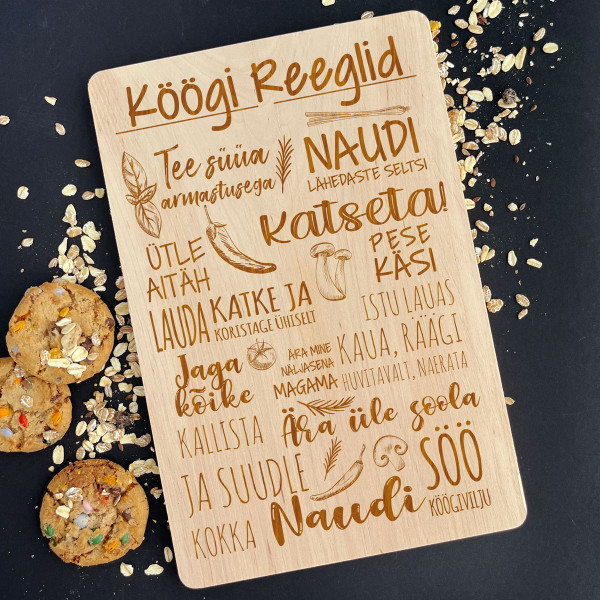 Köögi Reeglid
Tee süüa
armastusega
NAUDI
LÄHEDASTE SELTSI
Katseta!
ÜTLE
AITÄH
PESE
KÄSI
LAUDA KATKE JA
KORISTAGE ÜHISELT
ISTU LAUAS
KAUA, RÄÄGI
HUVITAVALT, NAERATA
Jaga
kõike
ÄRA MINE
NÄLJASENA
MAGAMA
Ära üle soola
KALLISTA
JA SUUDLE
KOKKA
Naudi
SÖÖ
KÖÖGIVILJU